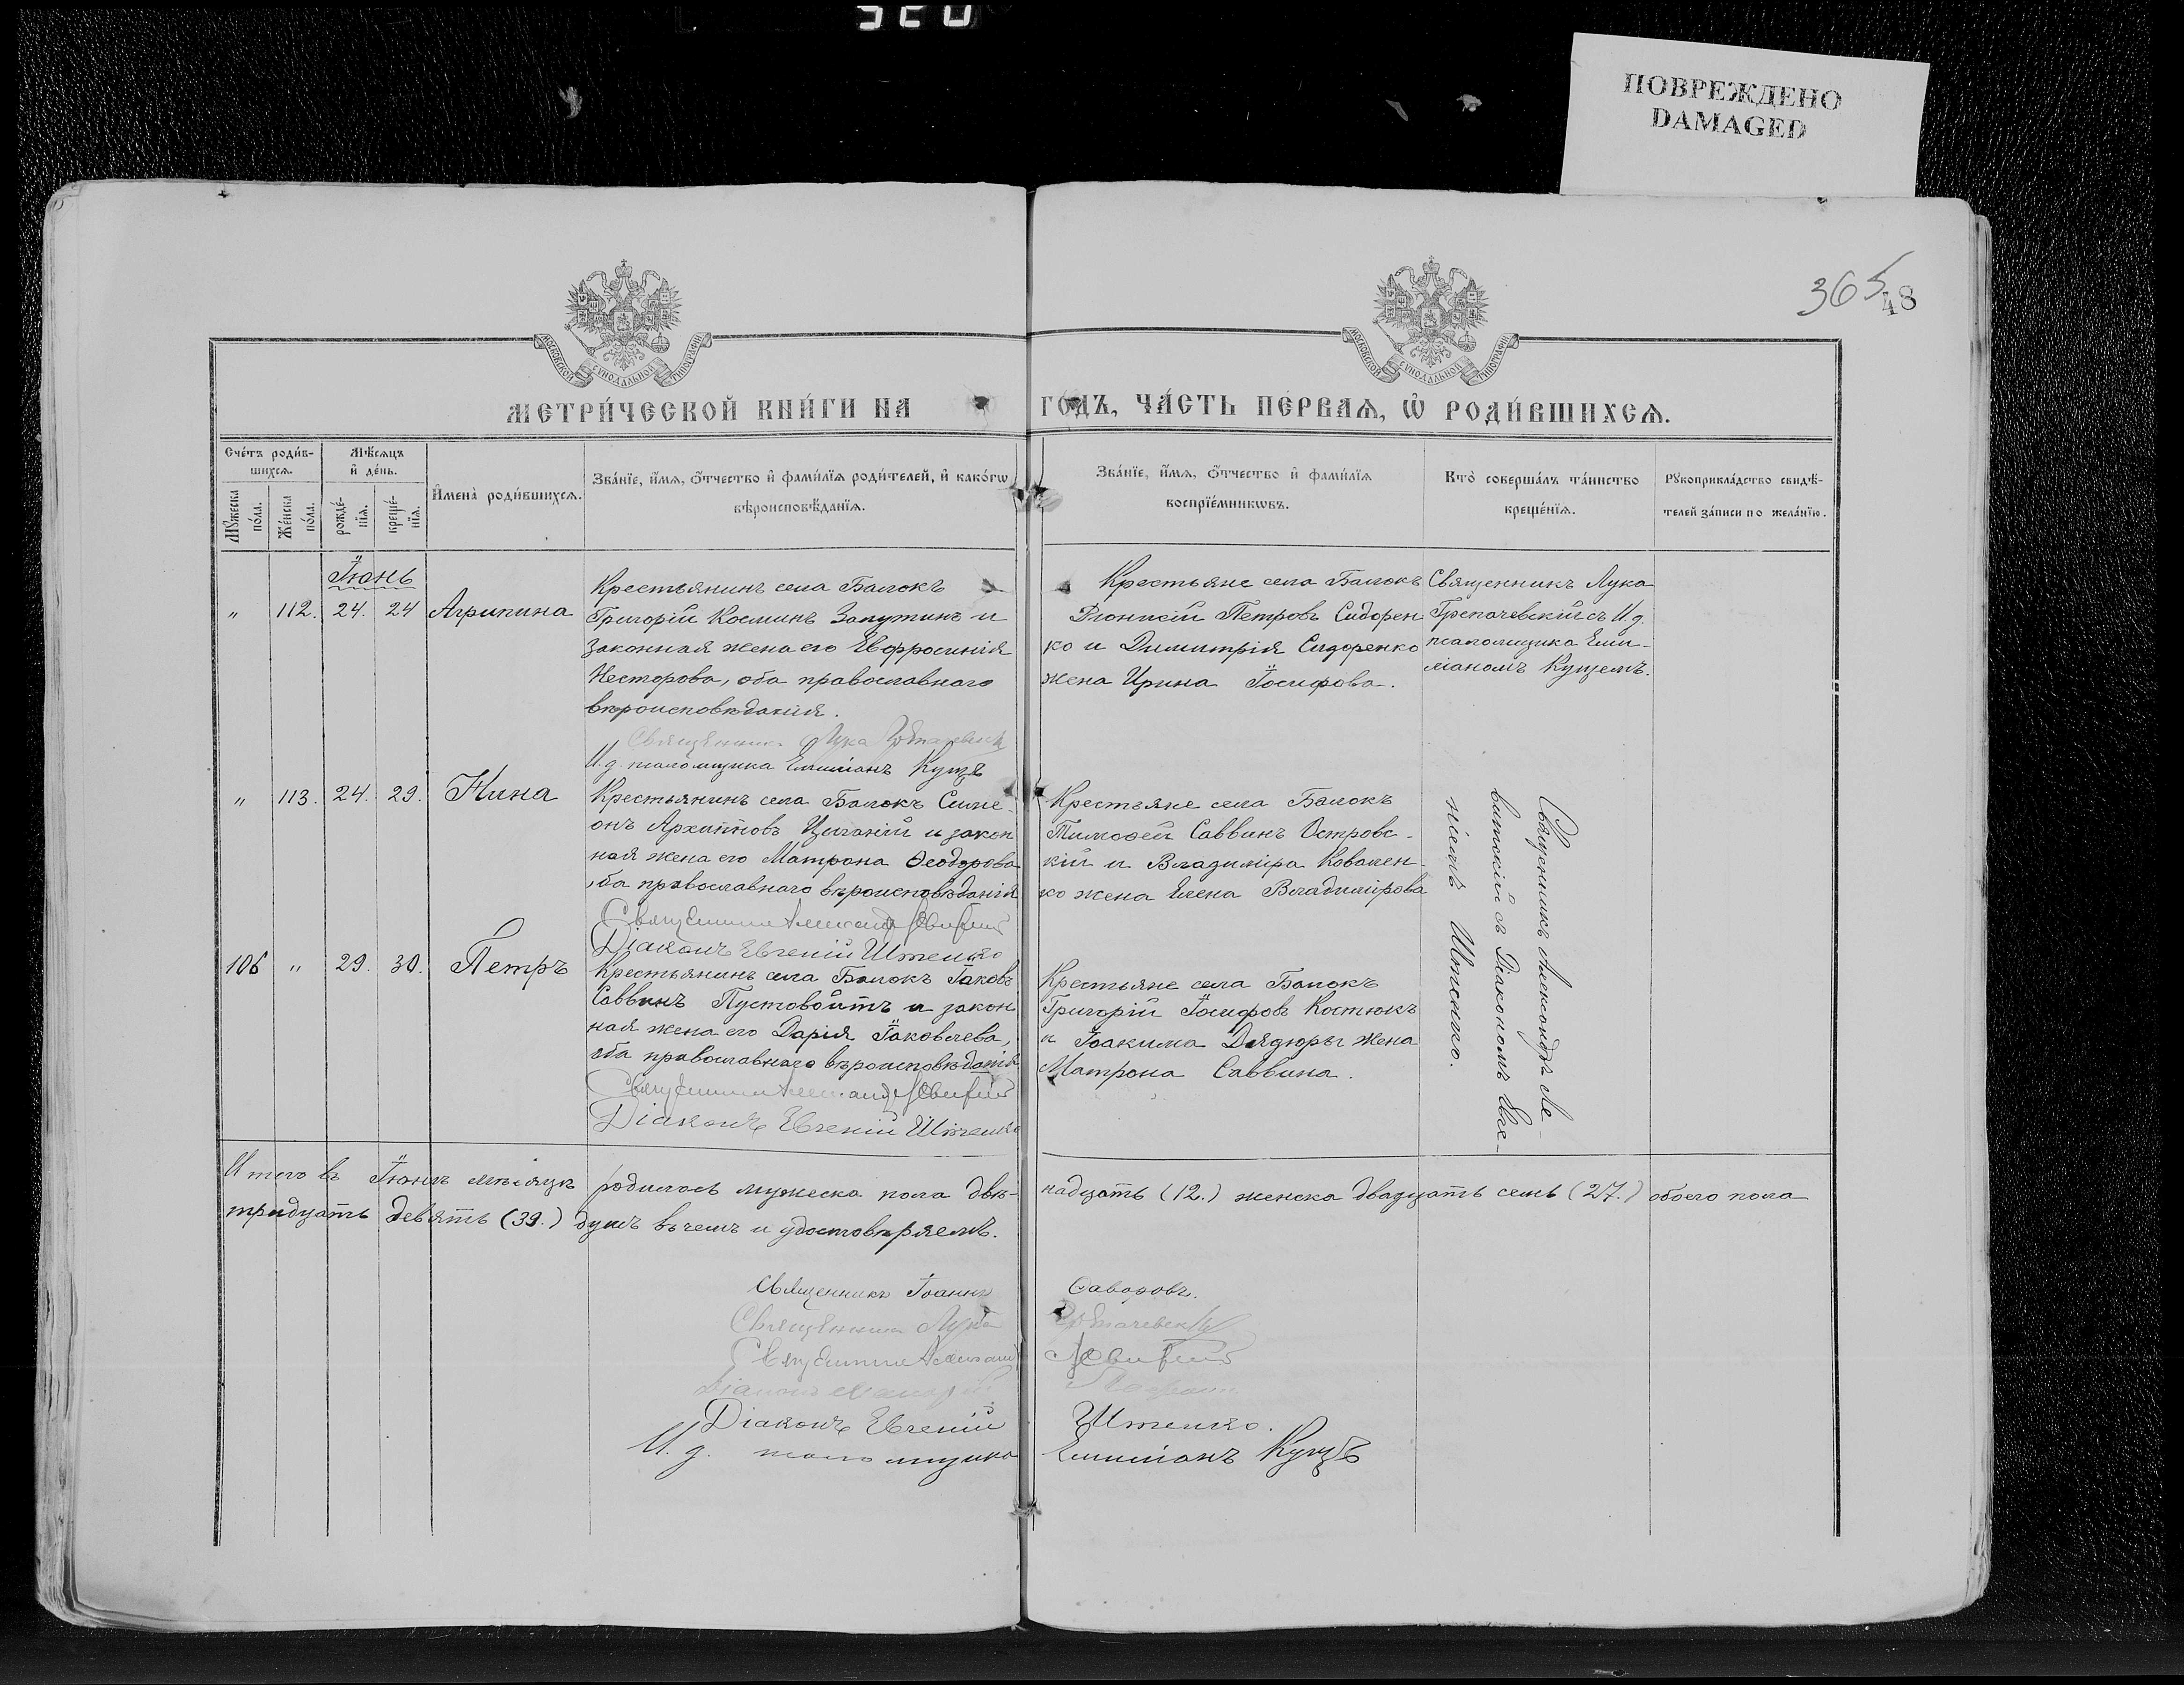 ПОВРЕЖДЕНО
DAMAGED
365
48
МОСКОВСКОЙ СѴНОДАЛЬНОЙ ТИПОГРАФІИ
МОСКОВСКОЙ СѴНОДАЛЬНОЙ ТИПОГРАФІИ
МЕТРИ́ЧЕСКОЙ КНИ́ГИ НА ГОДЪ, ЧА́СТЬ ПЕРВАѦ, Ѡ҆ РОДИ́ВШИХСѦ.
Сче́тъ роди́в-
шихсѧ.
Мѣсѧцъ
и҆ де́нь.
И҆мена̀ роди́вшихсѧ.
Зва́нїе, и҆́мѧ, ѻ҆́тчество и҆ фами́лїѧ роди́телей, и҆ како́гѡ
вѣроисповѣ́данїѧ.
Зва́нїе, и҆́мѧ, ѻ҆́тчество и҆ фами́лїѧ
воспрїе́мникѡвъ.
Кто̀ соверша́лъ та́инство
креще́нїѧ.
Рꙋкоприкла́дство свидѣ́-
телей за́писи по жела́нїю.
Мꙋ́жеска по́ла.
Же́нска по́ла.
рожде́-нїѧ.
креще́-нїѧ.
Іюнь
" 112. 24. 24 Агрипина
Крестьянинъ села Балокъ
Григорій Косминъ Запутинъ и
законная жена его Евфросинія
Несторова, оба православнаго
вѣроисповѣданія.
Священникъ Лука
И. д. псаломщика Емиліанъ Кущъ
Крестьяне села Балокъ
Діонисій Петровъ Сидорен
ко и Димитрія Сидоренко
жена Ирина Іосифова.
Священникъ Лука
Грепачевскій съ И. д.
псаломщика Еми-
ліаномъ Кущемъ.
" 113. 24. 29. Нина
Крестьянинъ села Балокъ Симе-
онъ Архипповъ Цыганій и закон
ная жена его Матрона Ѳеодорова
оба православнаго вѣроисповѣданія
Священникъ Александръ Левитскій
Діаконъ Евгеній Штенко
Крестьяне села Балокъ
Тимоѳей Саввинъ Островс-
кій и Владиміра Ковален-
ко жена Елена Владимірова
Священникъ Александръ Ле-
витскій съ Діакономъ Евге-
ніемъ Штенко.
106 " 29. 30. Петръ
Крестьянинъ села Балокъ Іаковъ
Саввинъ Пустовойтъ и закон
ная жена его Дарія Іаковлева,
оба православнаго вѣроисповѣданія
Священникъ Александръ Левитскій
Діаконъ Евгеній Штенко
Крестьяне села Балокъ
Григорій Іосифовъ Костюкъ
и Іоакима Дядюры жена
Матрона Саввина.
Итого въ Іюнѣ мѣсяцѣ родилось мужеска пола двѣ-надцать (12.) женска двадцать семь (27.) обоего пола
тридцать девять (39.) душъ въ чемъ и удостовѣряемъ.
Священникъ Іоаннъ Саворовъ.
Священникъ Лука
Священникъ Александръ Левитскій
Діаконъ
Діаконъ Евгеній Штенко.
И. д. псаломщика Емиліанъ Кущъ